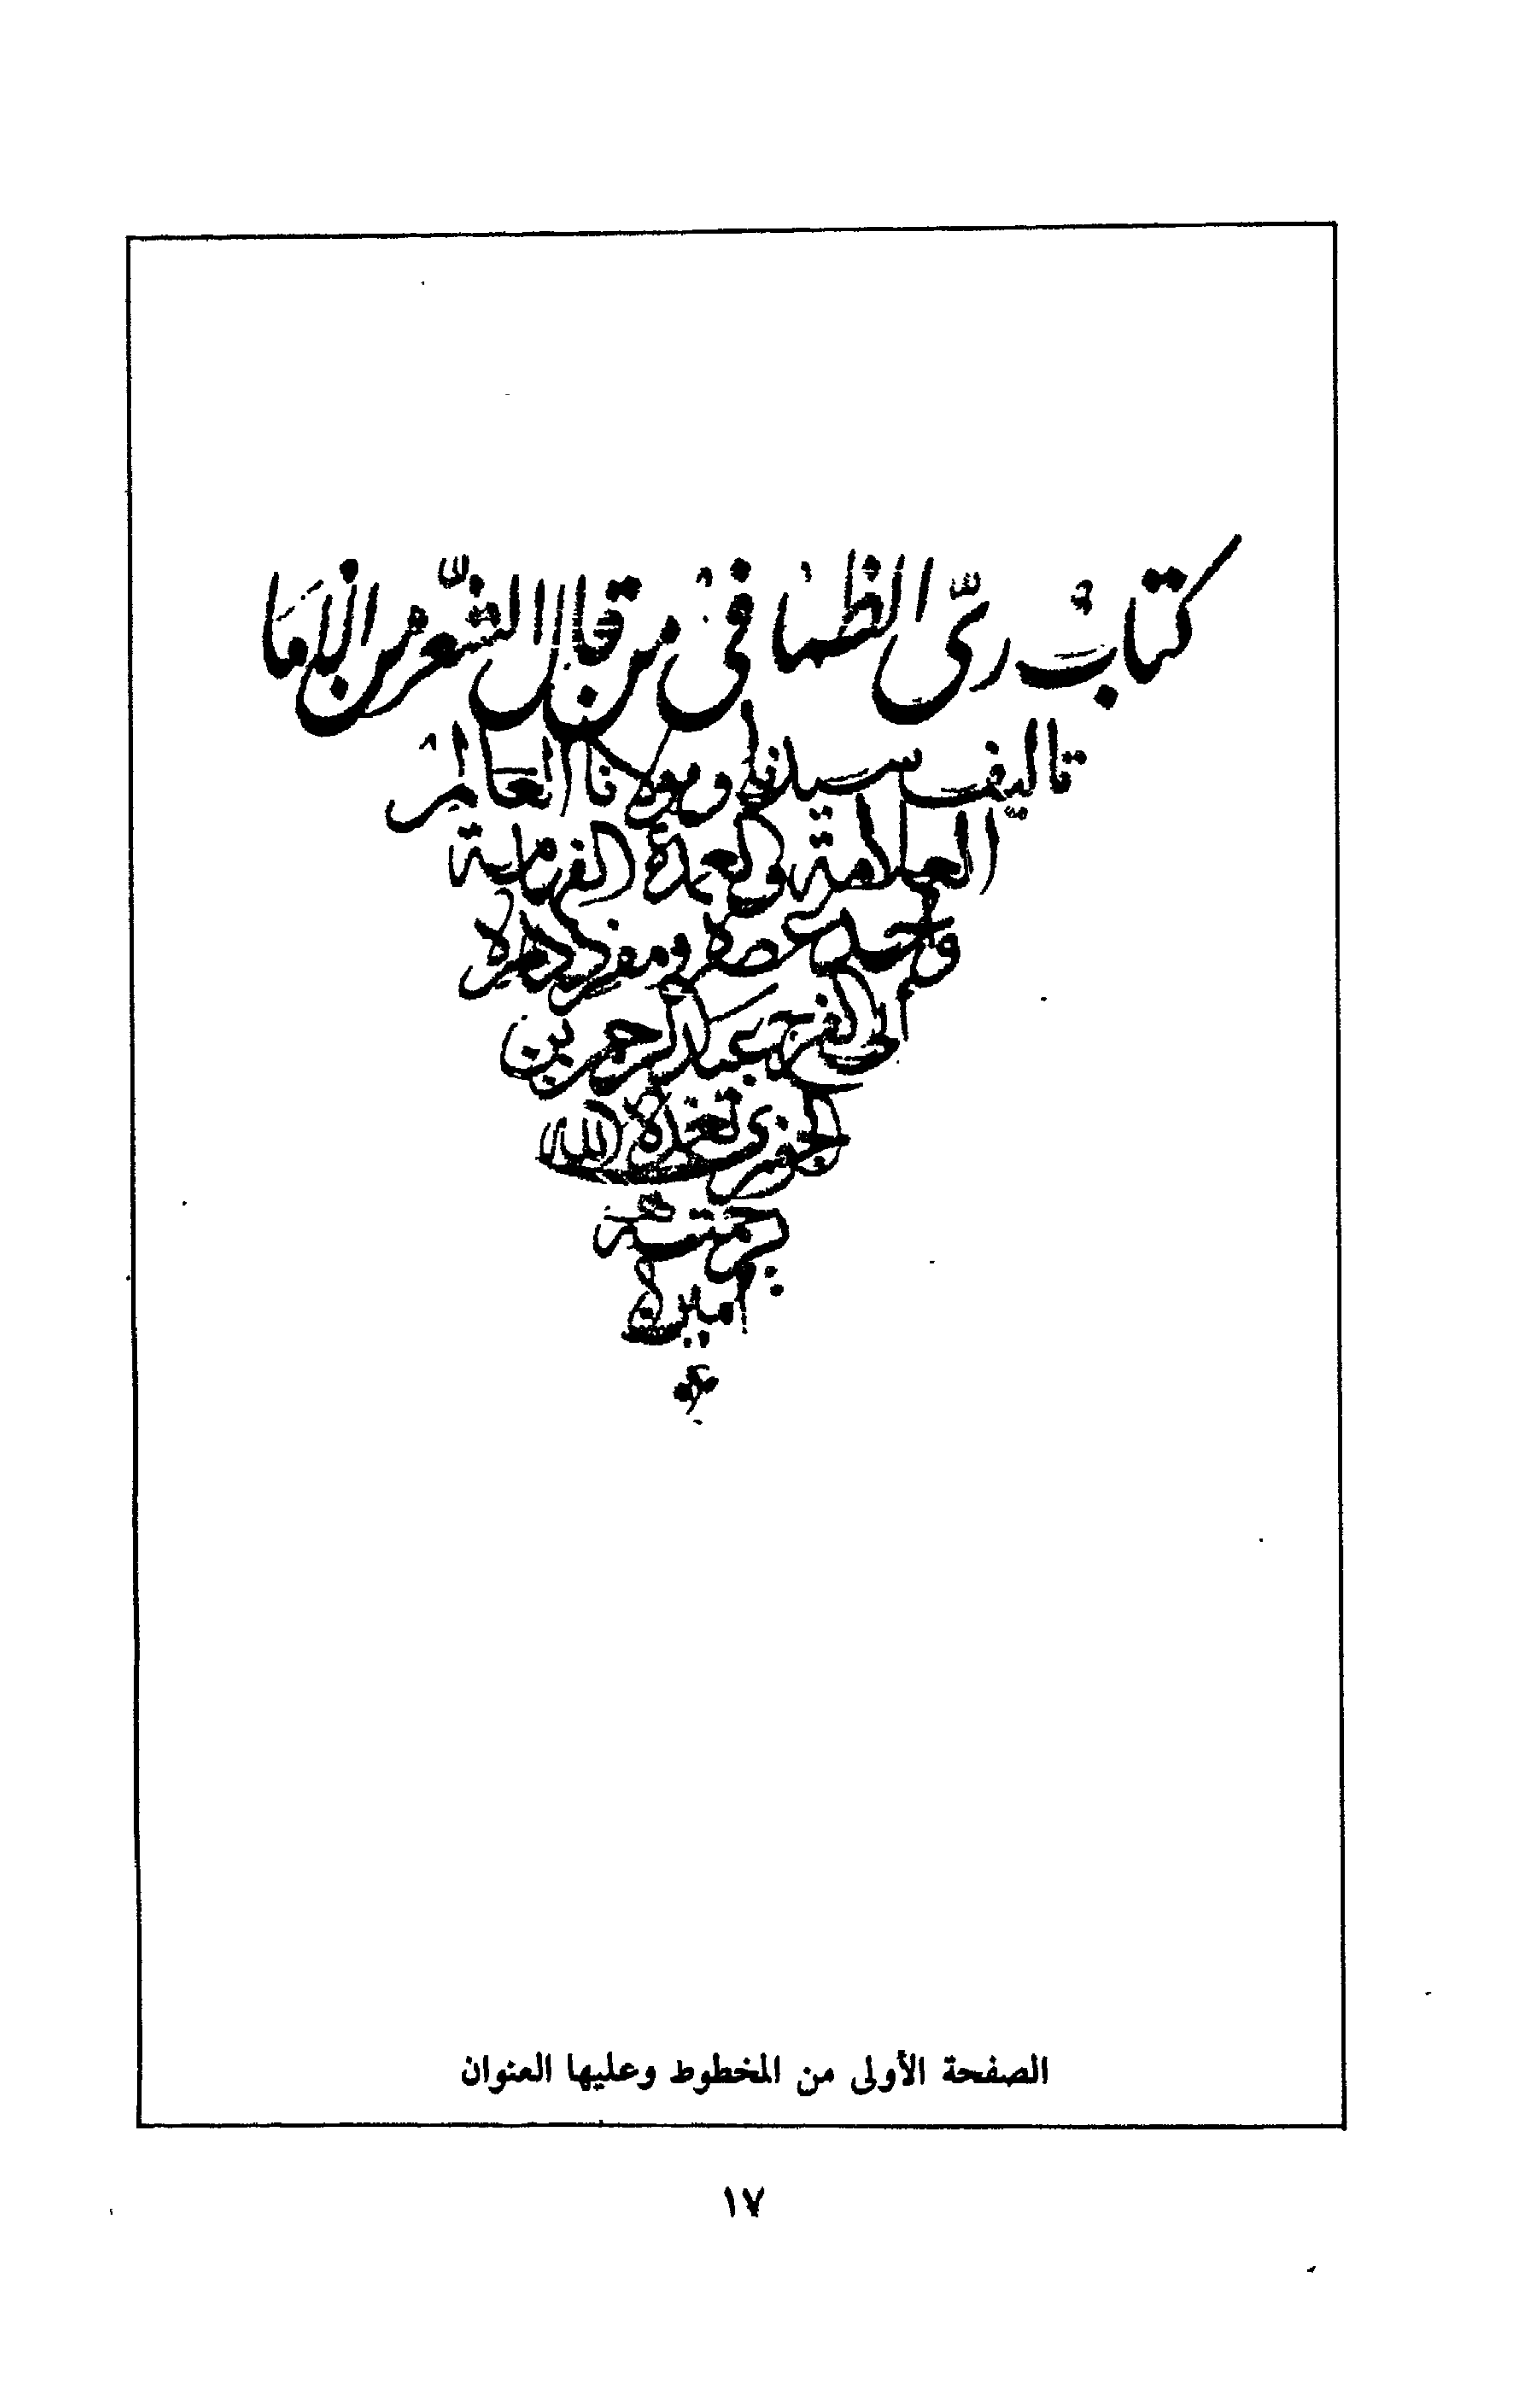 كتاب ريّ الظما في من قال الشعر من الاما
تاليف سيدنا ومولانا العالم
العلامة والعمدة الفهامة
واحد عصره ومفرد دهره
ابى الفرج عبد الرحمن بن
الجوزى تغمده الله
برحمته
امين
الصفحة الأولى من المخطوط وعليها العنوان
١٧